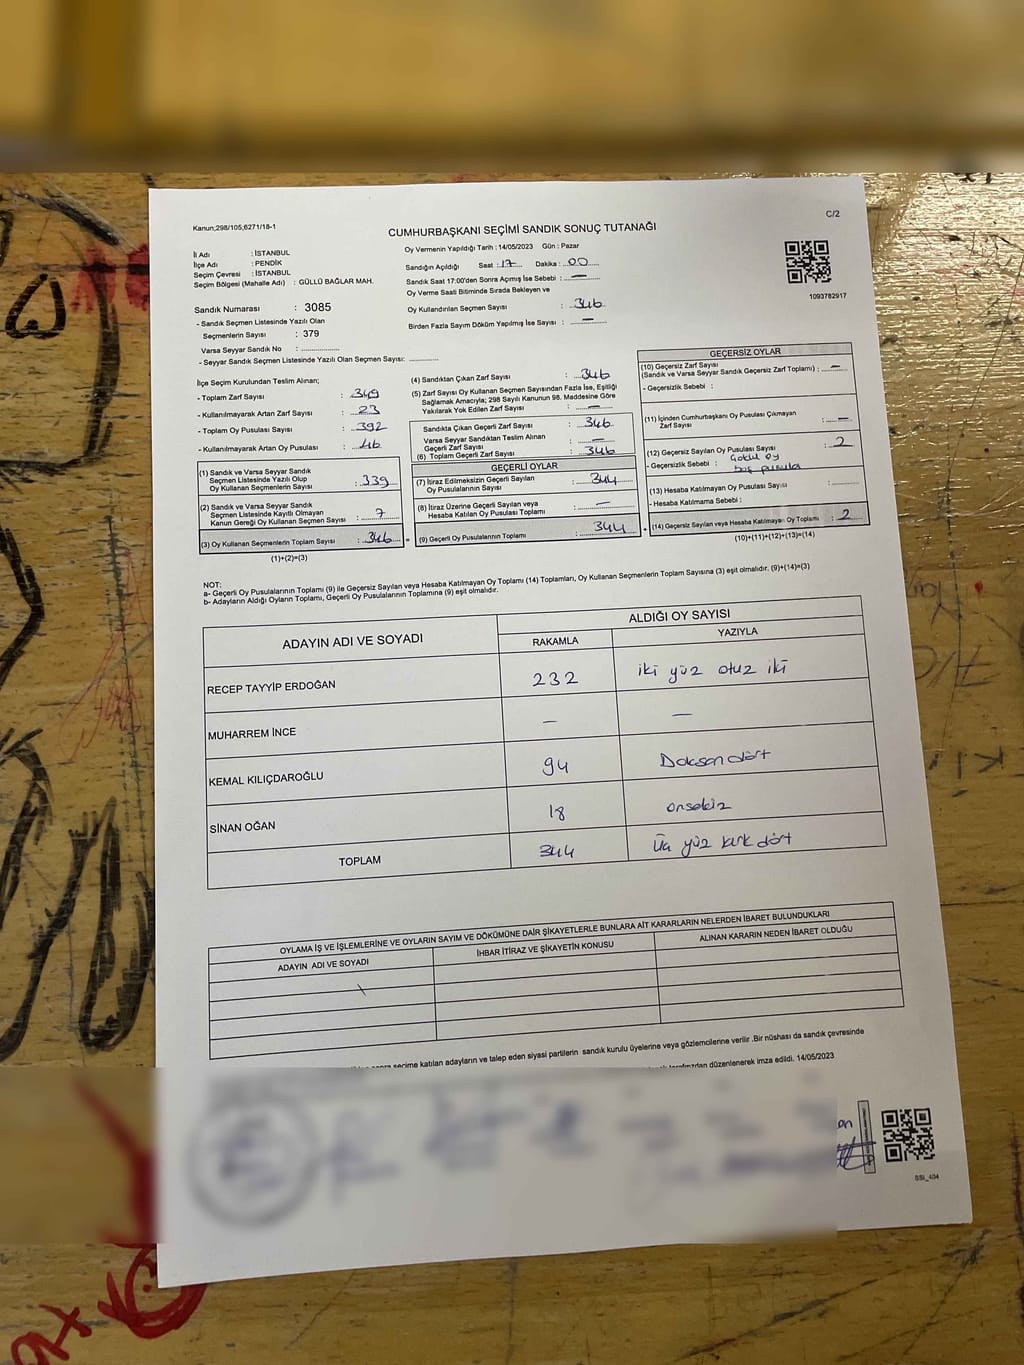 C/2
Kanun;298/105;6271/18-1
CUMHURBAŞKANI SEÇİMİ SANDIK SONUÇ TUTANAĞI
İl Adı : İSTANBUL
İlçe Adı : PENDİK
Seçim Çevresi : İSTANBUL
Seçim Bölgesi (Mahalle Adı) : GÜLLÜ BAĞLAR MAH.
Oy Vermenin Yapıldığı Tarih : 14/05/2023 Gün : Pazar
Sandığın Açıldığı Saat : 17 Dakika : 00
Sandık Saat 17:00'den Sonra Açılmış İse Sebebi : —
Oy Verme Saati Bitiminde Sırada Bekleyen ve
Oy Kullandırılan Seçmen Sayısı : 346
Birden Fazla Sayım Döküm Yapılmış İse Sayısı : —
1093782917
Sandık Numarası : 3085
- Sandık Seçmen Listesinde Yazılı Olan
Seçmenlerin Sayısı : 379
Varsa Seyyar Sandık No :
- Seyyar Sandık Seçmen Listesinde Yazılı Olan Seçmen Sayısı:
İlçe Seçim Kurulundan Teslim Alınan;
- Toplam Zarf Sayısı : 349
- Kullanılmayarak Artan Zarf Sayısı : 23
- Toplam Oy Pusulası Sayısı : 392
- Kullanılmayarak Artan Oy Pusulası : 46
(1) Sandık ve Varsa Seyyar Sandık
Seçmen Listesinde Yazılı Olup
Oy Kullanan Seçmenlerin Sayısı : 339
(2) Sandık ve Varsa Seyyar Sandık
Seçmen Listesinde Kayıtlı Olmayan
Kanun Gereği Oy Kullanan Seçmen Sayısı : 7
(3) Oy Kullanan Seçmenlerin Toplam Sayısı : 346
(1)+(2)=(3)
(4) Sandıktan Çıkan Zarf Sayısı : 346
(5) Zarf Sayısı Oy Kullanan Seçmen Sayısından Fazla İse, Eşitliği
Sağlamak Amacıyla; 298 Sayılı Kanunun 98. Maddesine Göre
Yakılarak Yok Edilen Zarf Sayısı : —
Sandıkta Çıkan Geçerli Zarf Sayısı : 346
Varsa Seyyar Sandıktan Teslim Alınan
Geçerli Zarf Sayısı : —
(6) Toplam Geçerli Zarf Sayısı : 346
GEÇERLİ OYLAR
(7) İtiraz Edilmeksizin Geçerli Sayılan
Oy Pusulalarının Sayısı : 344
(8) İtiraz Üzerine Geçerli Sayılan veya
Hesaba Katılan Oy Pusulası Toplamı : —
(9) Geçerli Oy Pusulalarının Toplamı : 344
GEÇERSİZ OYLAR
(10) Geçersiz Zarf Sayısı
(Sandık ve Varsa Seyyar Sandık Geçersiz Zarf Toplamı) : —
- Geçersizlik Sebebi :
(11) İçinden Cumhurbaşkanı Oy Pusulası Çıkmayan
Zarf Sayısı : —
(12) Geçersiz Sayılan Oy Pusulası Sayısı : 2
- Geçersizlik Sebebi : oy
boş pusula
(13) Hesaba Katılmayan Oy Pusulası Sayısı :
- Hesaba Katılmama Sebebi :
(14) Geçersiz Sayılan veya Hesaba Katılmayan Oy Toplamı : 2
(10)+(11)+(12)+(13)=(14)
NOT:
a- Geçerli Oy Pusulalarının Toplamı (9) ile Geçersiz Sayılan veya Hesaba Katılmayan Oy Toplamı (14) Toplamları, Oy Kullanan Seçmenlerin Toplam Sayısına (3) eşit olmalıdır. (9)+(14)=(3)
b- Adayların Aldığı Oyların Toplamı, Geçerli Oy Pusulalarının Toplamına (9) eşit olmalıdır.
ADAYIN ADI VE SOYADI
ALDIĞI OY SAYISI
RAKAMLA YAZIYLA
RECEP TAYYİP ERDOĞAN 232 iki yüz otuz iki
MUHARREM İNCE — —
KEMAL KILIÇDAROĞLU 94 Doksan dört
SİNAN OĞAN 18 onsekiz
TOPLAM 344 Üç yüz kırk dört
OYLAMA İŞ VE İŞLEMLERİNE VE OYLARIN SAYIM VE DÖKÜMÜNE DAİR ŞİKAYETLERLE BUNLARA AİT KARARLARIN NELERDEN İBARET BULUNDUKLARI
ADAYIN ADI VE SOYADI İHBAR İTİRAZ VE ŞİKAYETİN KONUSU ALINAN KARARIN NEDEN İBARET OLDUĞU
seçime katılan adayların ve talep eden siyasi partilerin sandık kurulu üyelerine veya gözlemcilerine verilir .Bir nüshası da sandık çevresinde
düzenlenerek imza edildi. 14/05/2023